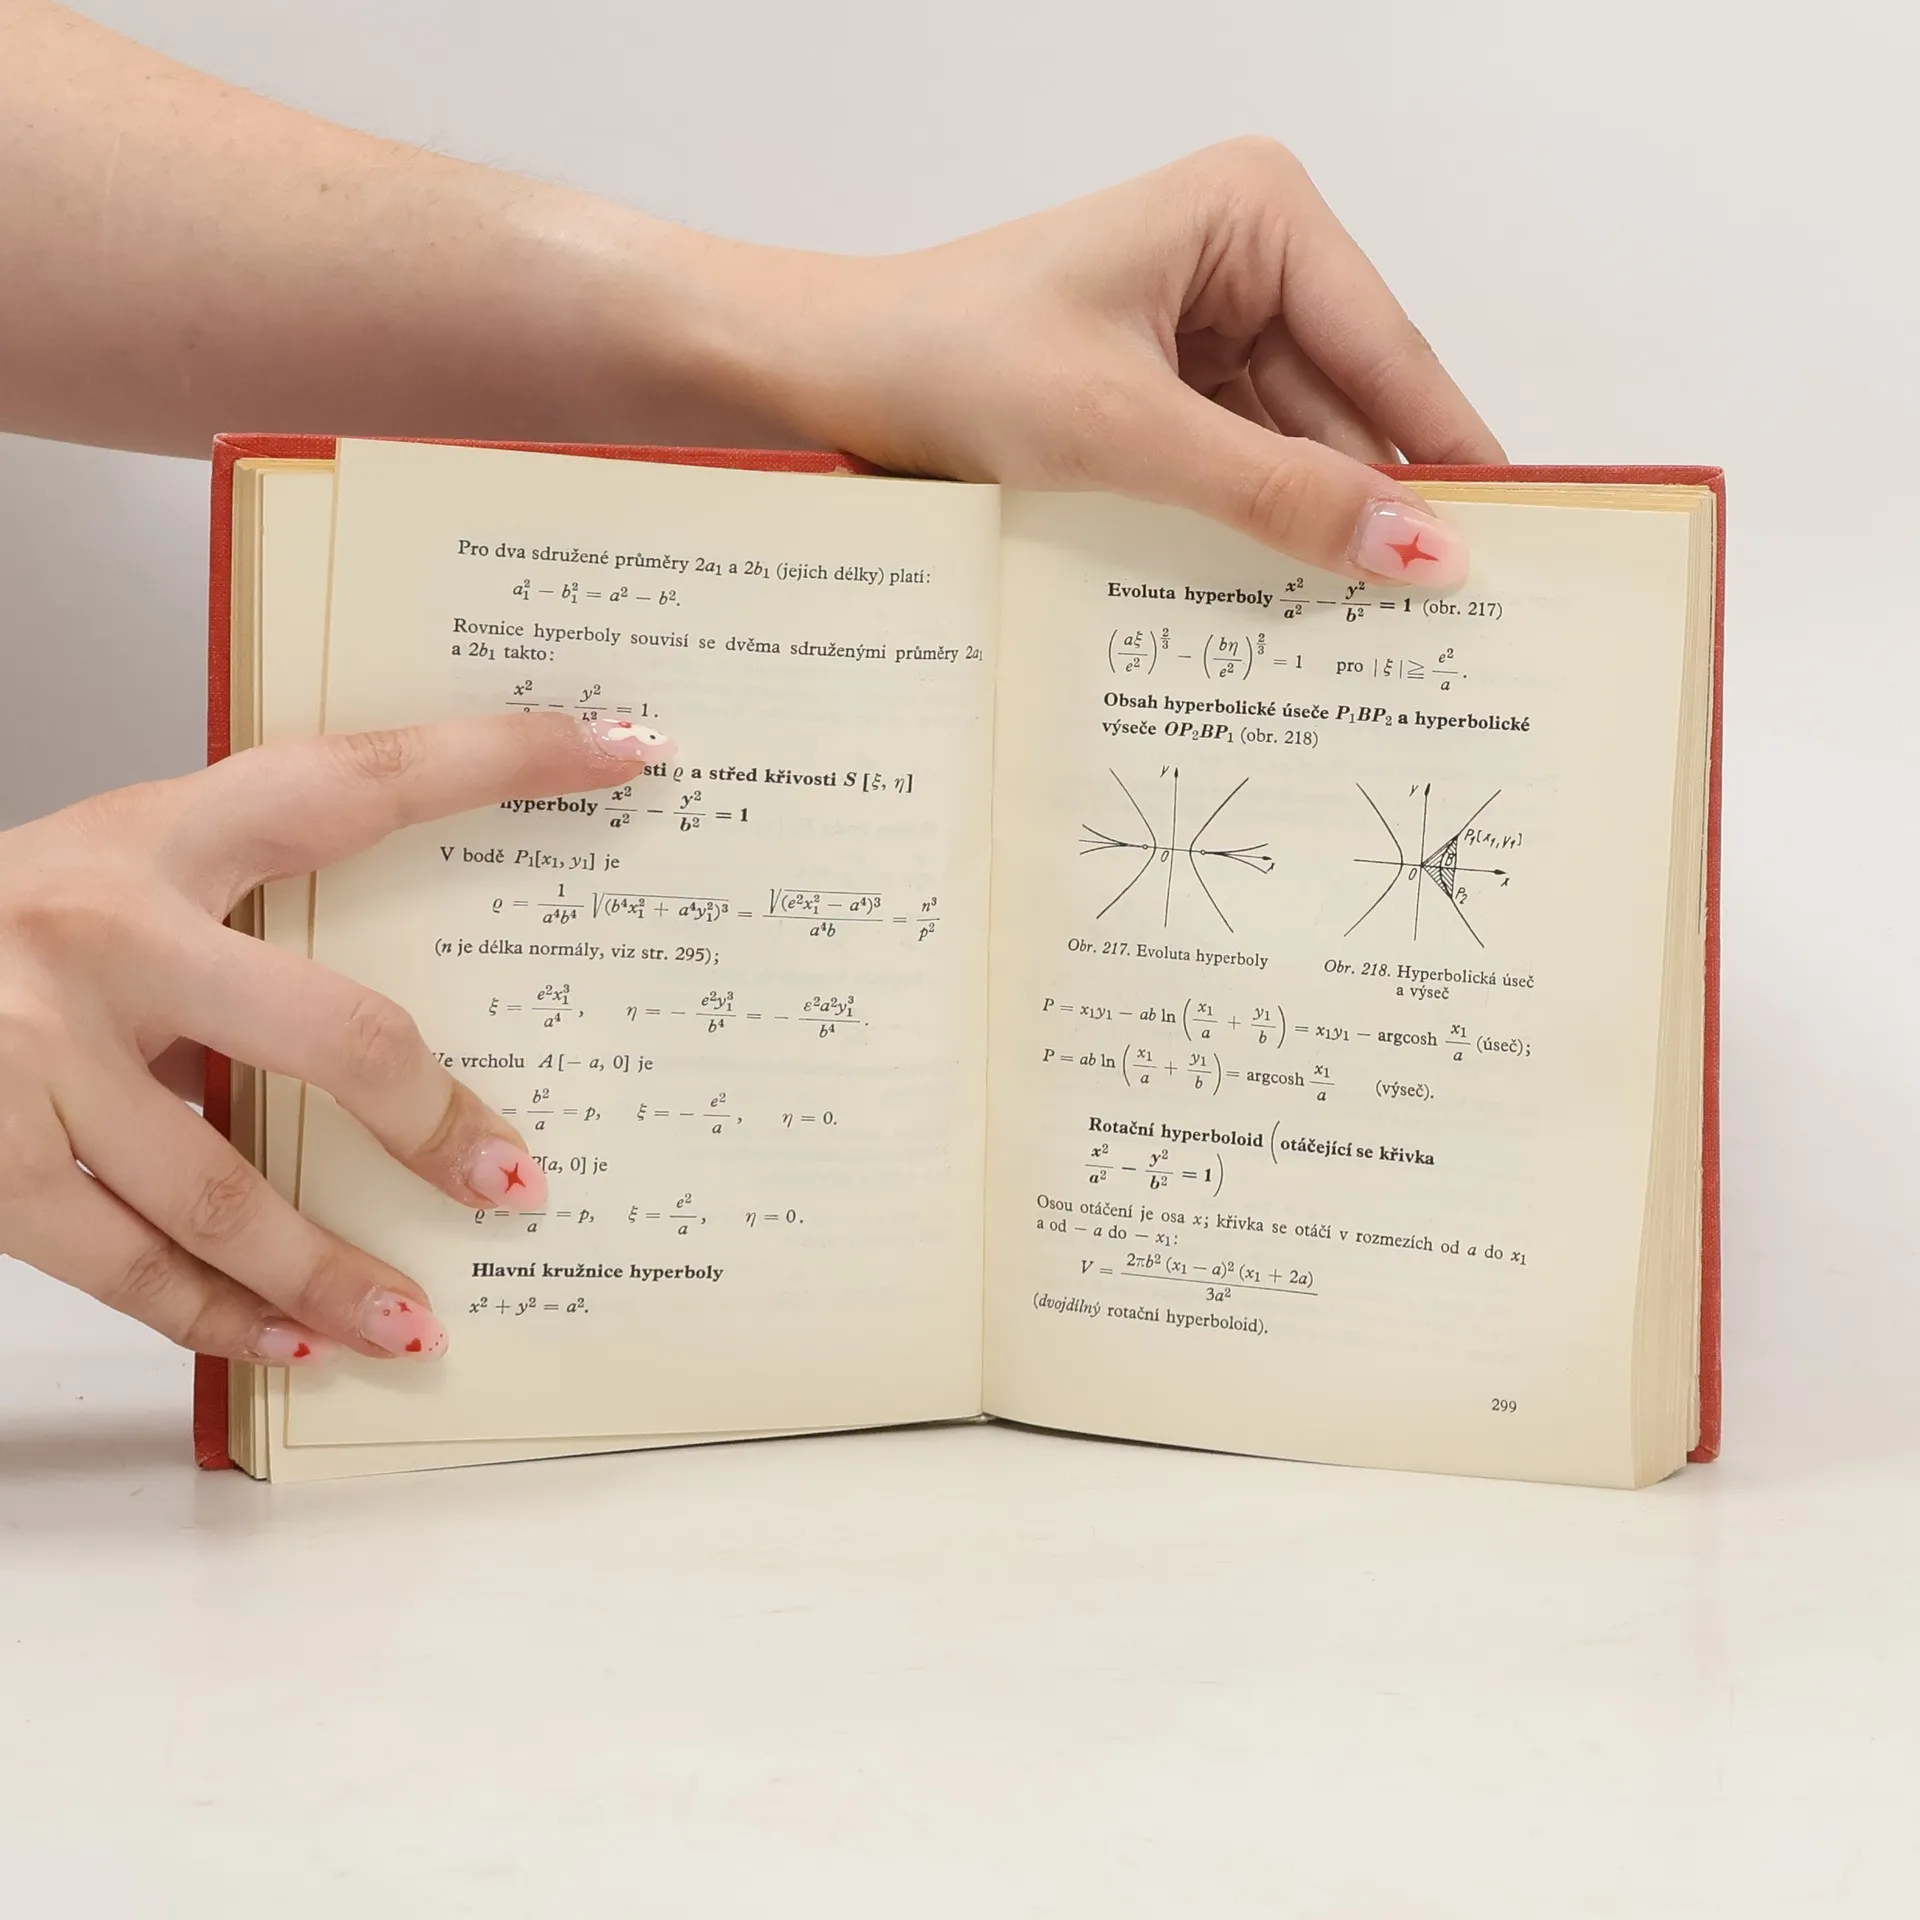 Pro dva sdružené průměry 2a₁ a 2b₁ (jejich délky) platí:
a₁² − b₁² = a² − b².
Rovnice hyperboly souvisí se dvěma sdruženými průměry 2a₁
a 2b₁ takto:
x² − y² = 1.
ϱ a střed křivosti S [ξ, η]
hyperboly x²/a² − y²/b² = 1
V bodě P₁[x₁, y₁] je
ϱ = 1/(a⁴b⁴) √(b⁴x₁² + a⁴y₁²)³ = √(e²x₁² − a⁴)³/(a⁴b) = n³/p²
(n je délka normály, viz str. 295);
ξ = e²x₁³/a⁴, η = − e²y₁³/b⁴ = − ε²a²y₁³/b⁴.
vrcholu A [− a, 0] je
= b²/a = p, ξ = − e²/a, η = 0.
[a, 0] je
ϱ = /a = p, ξ = e²/a, η = 0.
Hlavní kružnice hyperboly
x² + y² = a².
Evoluta hyperboly x²/a² − y²/b² = 1 (obr. 217)
(aξ/e²)^(2/3) − (bη/e²)^(2/3) = 1 pro |ξ| ≧ e²/a.
Obsah hyperbolické úseče P₁BP₂ a hyperbolické
výseče OP₂BP₁ (obr. 218)
y
O
x
y
P₁[x₁, y₁]
B
O
x
P₂
Obr. 217. Evoluta hyperboly
Obr. 218. Hyperbolická úseč
a výseč
P = x₁y₁ − ab ln (x₁/a + y₁/b) = x₁y₁ − argcosh x₁/a (úseč);
P = ab ln (x₁/a + y₁/b) = argcosh x₁/a (výseč).
Rotační hyperboloid (otáčející se křivka
x²/a² − y²/b² = 1)
Osou otáčení je osa x; křivka se otáčí v rozmezích od a do x₁
a od − a do − x₁:
V = 2πb² (x₁ − a)² (x₁ + 2a)/3a²
(dvojdílný rotační hyperboloid).
299